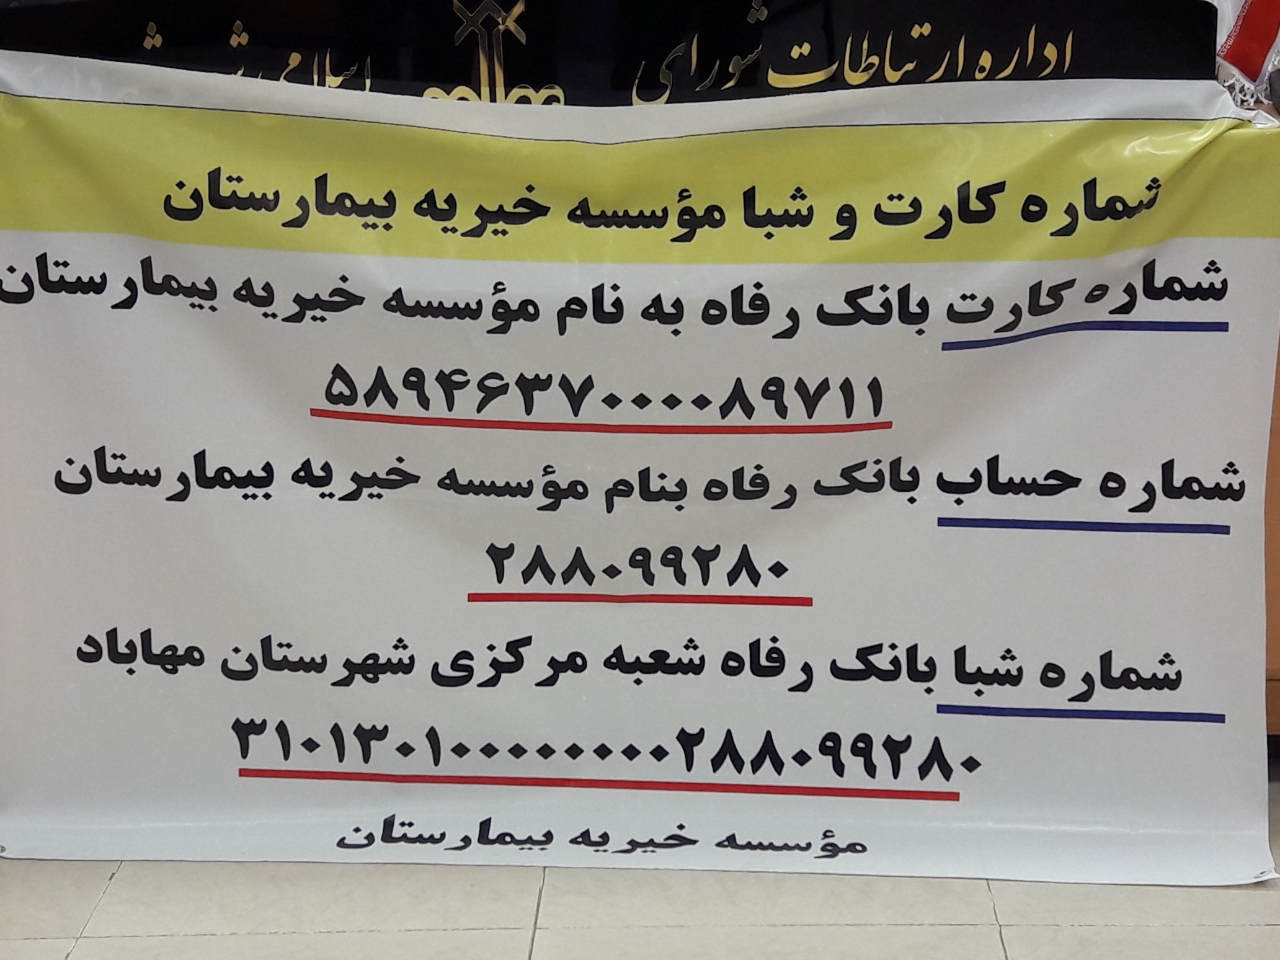 اداره ارتباطات شورای اسلامی
شماره کارت و شبا مؤسسه خیریه بیمارستان
شماره کارت بانک رفاه به نام مؤسسه خیریه بیمارستان
۵۸۹۴۶۳۷۰۰۰۰۸۹۷۱۱
شماره حساب بانک رفاه بنام مؤسسه خیریه بیمارستان
۲۸۸۰۹۹۲۸۰
شماره شبا بانک رفاه شعبه مرکزی شهرستان مهاباد
۳۱۰۱۳۰۱۰۰۰۰۰۰۰۰۲۸۸۰۹۹۲۸۰
مؤسسه خیریه بیمارستان